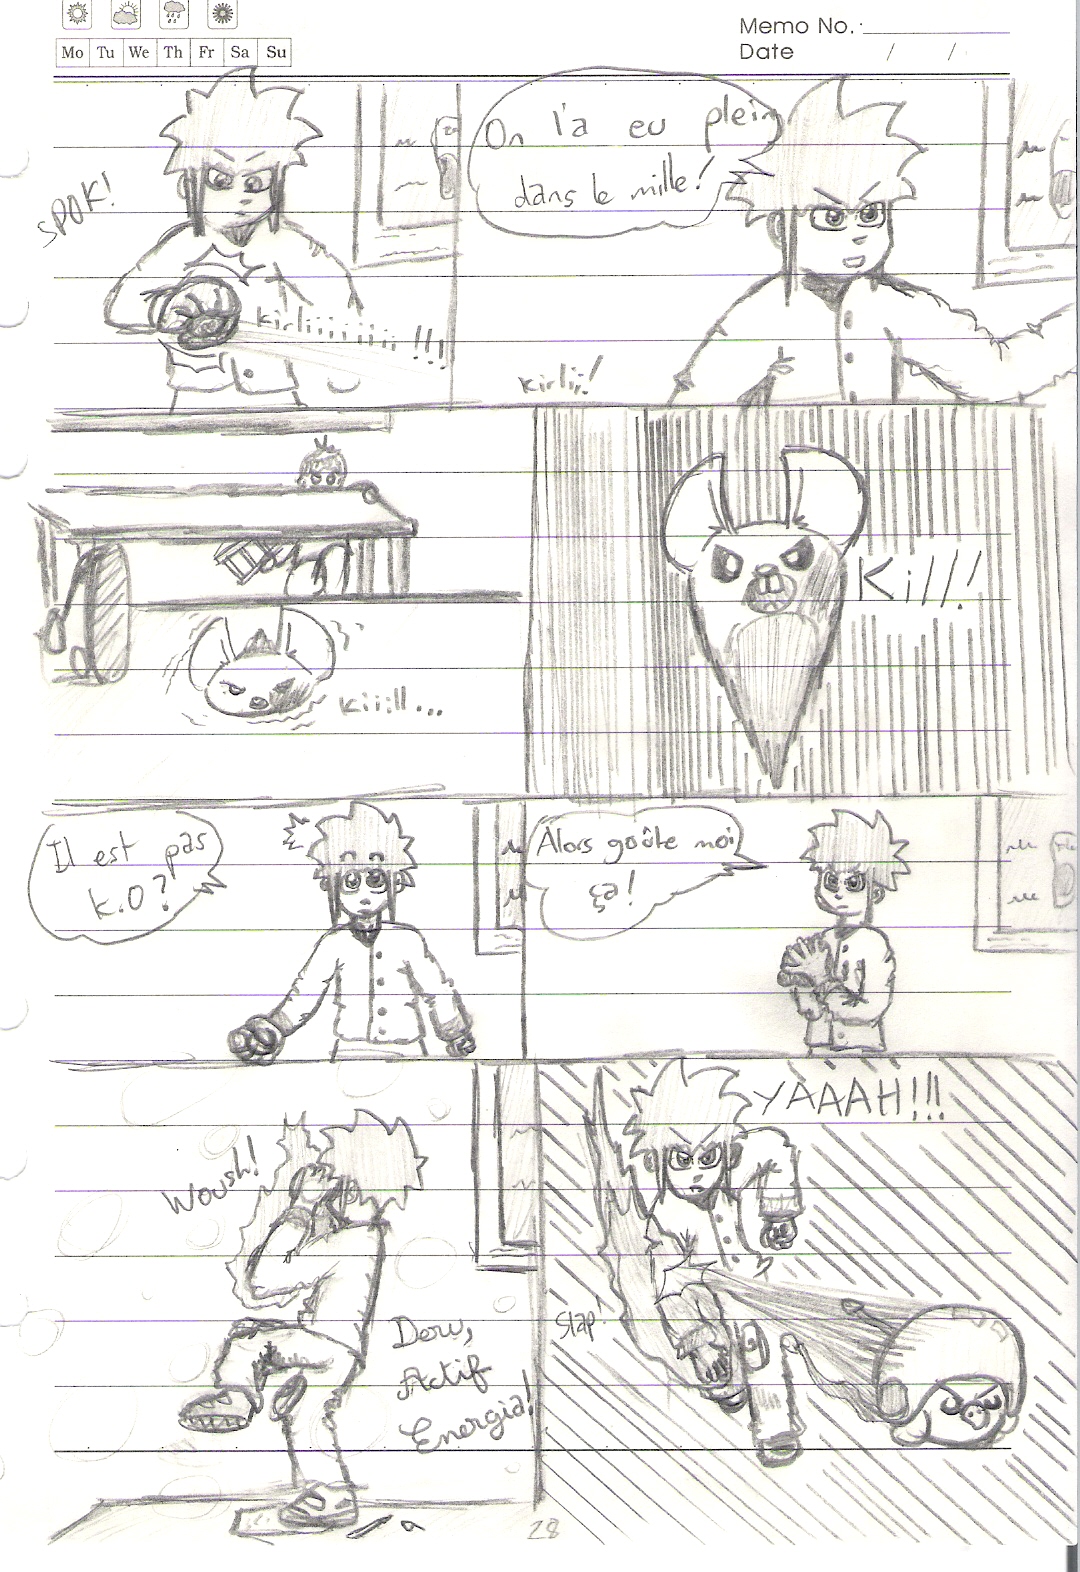 Mo Tu We Th Fr Sa Su
Memo No.:
Date / /
SPOK!
Kirliiiiiiii !!!
On l'a eu plein
dans le mille!
Kirlii!
Kiiill...
Kill!
Il est pas
K.O?
Alors goûte moi
ça!
Woush!
Dew,
Actif
Energia!
YAAAH!!!
Slap!
28